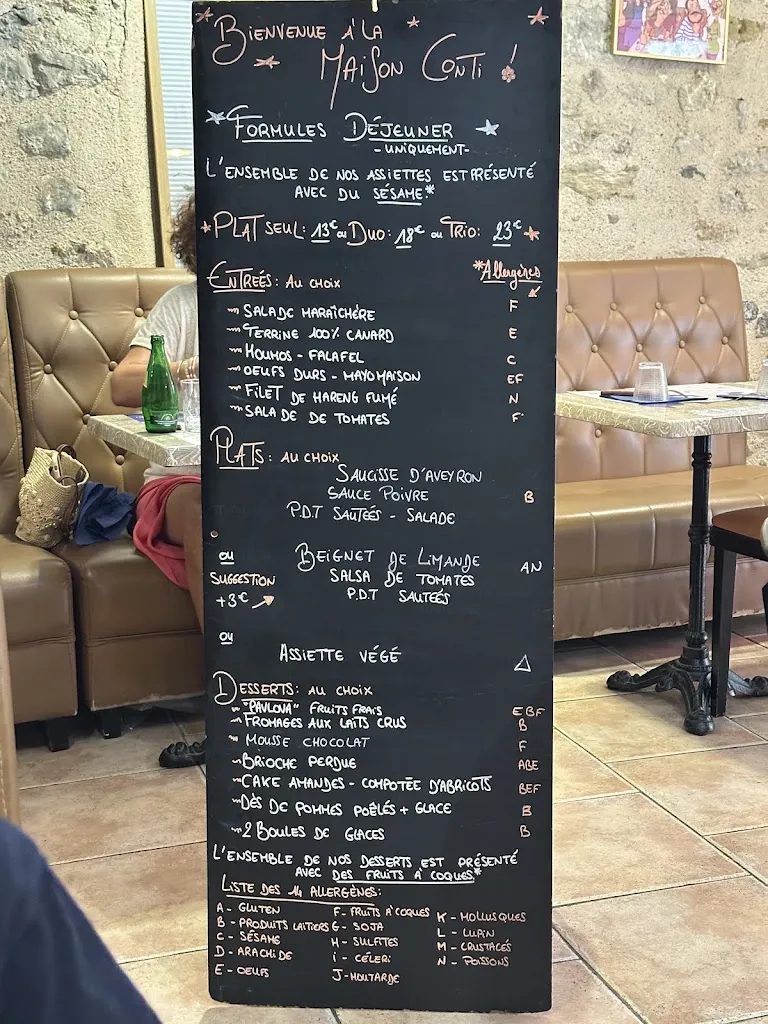 BIENVENUE À LA
MAISON CONTI !
FORMULES DÉJEUNER
-UNIQUEMENT-
L'ENSEMBLE DE NOS ASSIETTES EST PRÉSENTÉ
AVEC DU SÉSAME.*
PLAT SEUL: 13€ ou DUO: 18€ ou TRIO: 23€
ENTREÉS: AU CHOIX *Allergènes
SALADE MARAÎCHÉRE F
TERRINE 100% CANARD E
HOUMOS - FALAFEL C
OEUFS DURS - MAYOMAISON EF
FILET DE HARENG FUMÉ N
SALADE DE TOMATES F
PLATS: AU CHOIX
SAUCISSE D'AVEYRON
SAUCE POIVRE B
P.D.T SAUTEÉS - SALADE
ou
BEIGNET DE LIMANDE AN
SUGGESTION SALSA DE TOMATES
+3€ P.D.T SAUTEÉS
ou
ASSIETTE VÉGÉ
DESSERTS: AU CHOIX
"PAVLOVA" FRUITS FRAIS EBF
FROMAGES AUX LAITS CRUS B
MOUSSE CHOCOLAT F
BRIOCHE PERDUE ABE
CAKE AMANDES - COMPOTÉE D'ABRICOTS BEF
DÈS DE POMMES POÊLÉS + GLACE B
2 BOULES DE GLACES B
L'ENSEMBLE DE NOS DESSERTS EST PRÉSENTÉ
AVEC DES FRUITS À COQUES*
LISTE DES 14 ALLERGÈNES:
A - GLUTEN F - FRUITS À COQUES K - MOLLUSQUES
B - PRODUITS LAITIERS G - SOJA L - LUPIN
C - SÉSAME H - SULFITES M - CRUSTACÉS
D - ARACHIDE i - CÉLERI N - POISSONS
E - OEUFS J - MOUTARDE